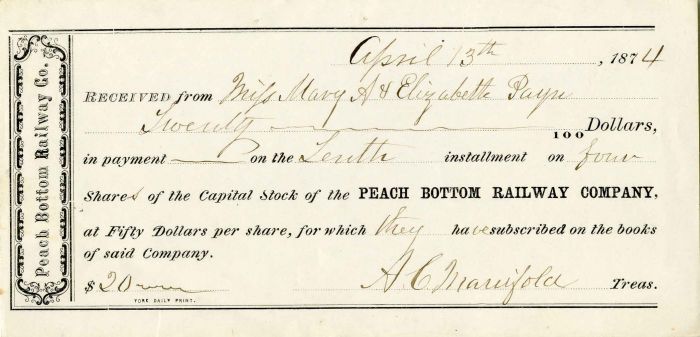 Peach Bottom Railway Co.
April 13th, 1874
RECEIVED from Miss Mary A & Elizabeth Payn
Twenty 100 Dollars,
in payment on the Tenth installment on four
Shares of the Capital Stock of the PEACH BOTTOM RAILWAY COMPANY,
at Fifty Dollars per share, for which they have subscribed on the books
of said Company.
$20 A. C. Manifold Treas.
YORK DAILY PRINT.